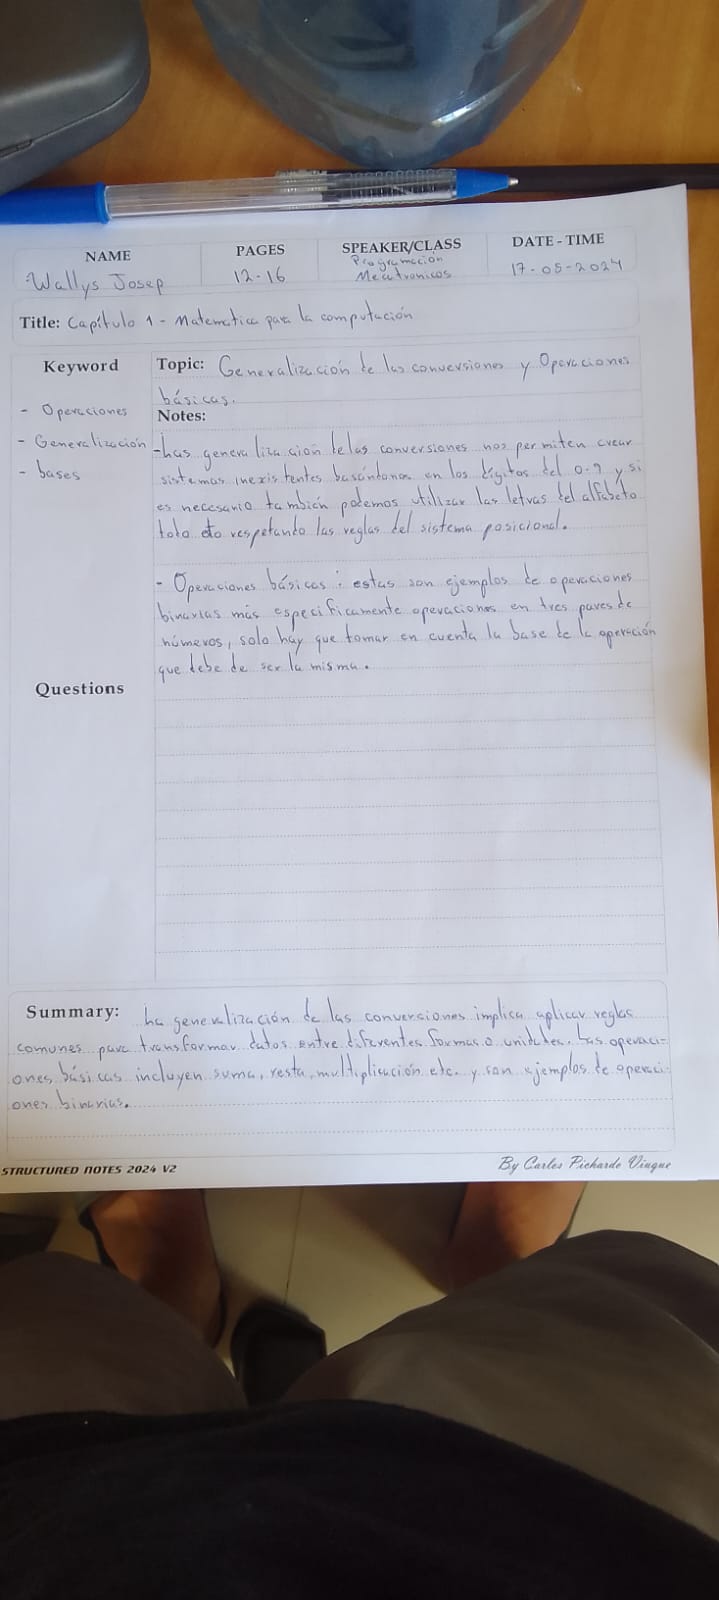 NAME PAGES SPEAKER/CLASS DATE - TIME
Wallys Josep 12-16 Programación Mecatronicos 17-05-2024
Title: Capítulo 1 - Matematica para la computación
Keyword
- Operaciones
- Generalización
- bases
Topic: Generalización de las conversiones y Operaciones
básicas.
Notes:
- Las generalización de las conversiones nos permiten crear
sistemas inexistentes basándonos en los dígitos del 0-9 y si
es necesario también podemos utilizar las letras del alfabeto
todo eto respetando las reglas del sistema posicional.
- Operaciones básicas: estas son ejemplos de operaciones
binarias más especificamente operaciones en tres pares de
números, solo hay que tomar en cuenta la base de la operación
que debe de ser la misma.
Questions
Summary: La generalización de las conversiones implica aplicar reglas
comunes para transformar datos entre diferentes formas o unidades. Las operaci-
ones básicas incluyen suma, resta, multiplicación etc. y son ejemplos de operaci-
ones binarias.
STRUCTURED NOTES 2024 V2 By Carlos Pichardo Viuque